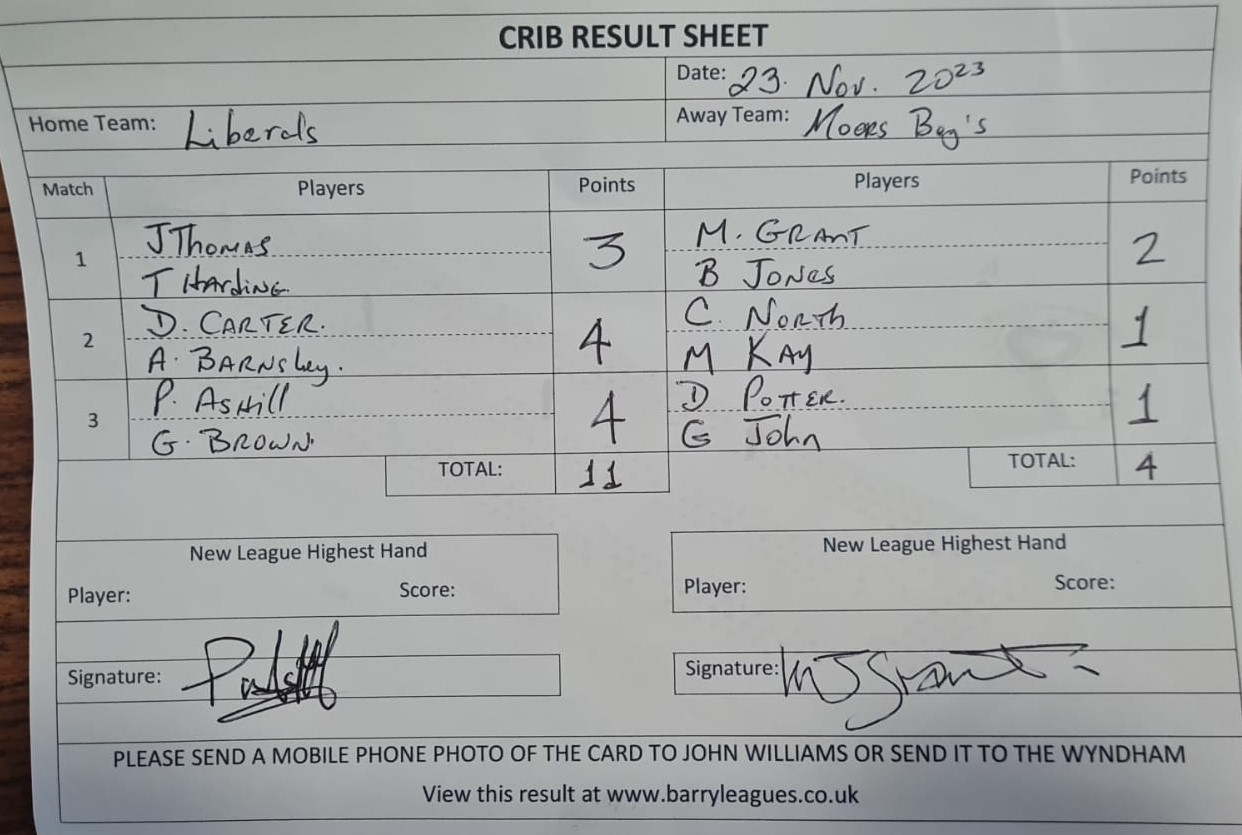 CRIB RESULT SHEET
Date: 23. Nov. 2023
Home Team: Liberals Away Team: Moors Bay's
Match Players Points Players Points
J Thomas M. GRANT
1 3 2
T Harding B Jones
D. CARTER. C. North
2 4 1
A. BARNsley. M KAY
P. AsHill D POTTER.
3 4 1
G. BROWN. G John
TOTAL: 11 TOTAL: 4
New League Highest Hand New League Highest Hand
Player: Score: Player: Score:
Signature: Signature: MJ Grant
PLEASE SEND A MOBILE PHONE PHOTO OF THE CARD TO JOHN WILLIAMS OR SEND IT TO THE WYNDHAM
View this result at www.barryleagues.co.uk